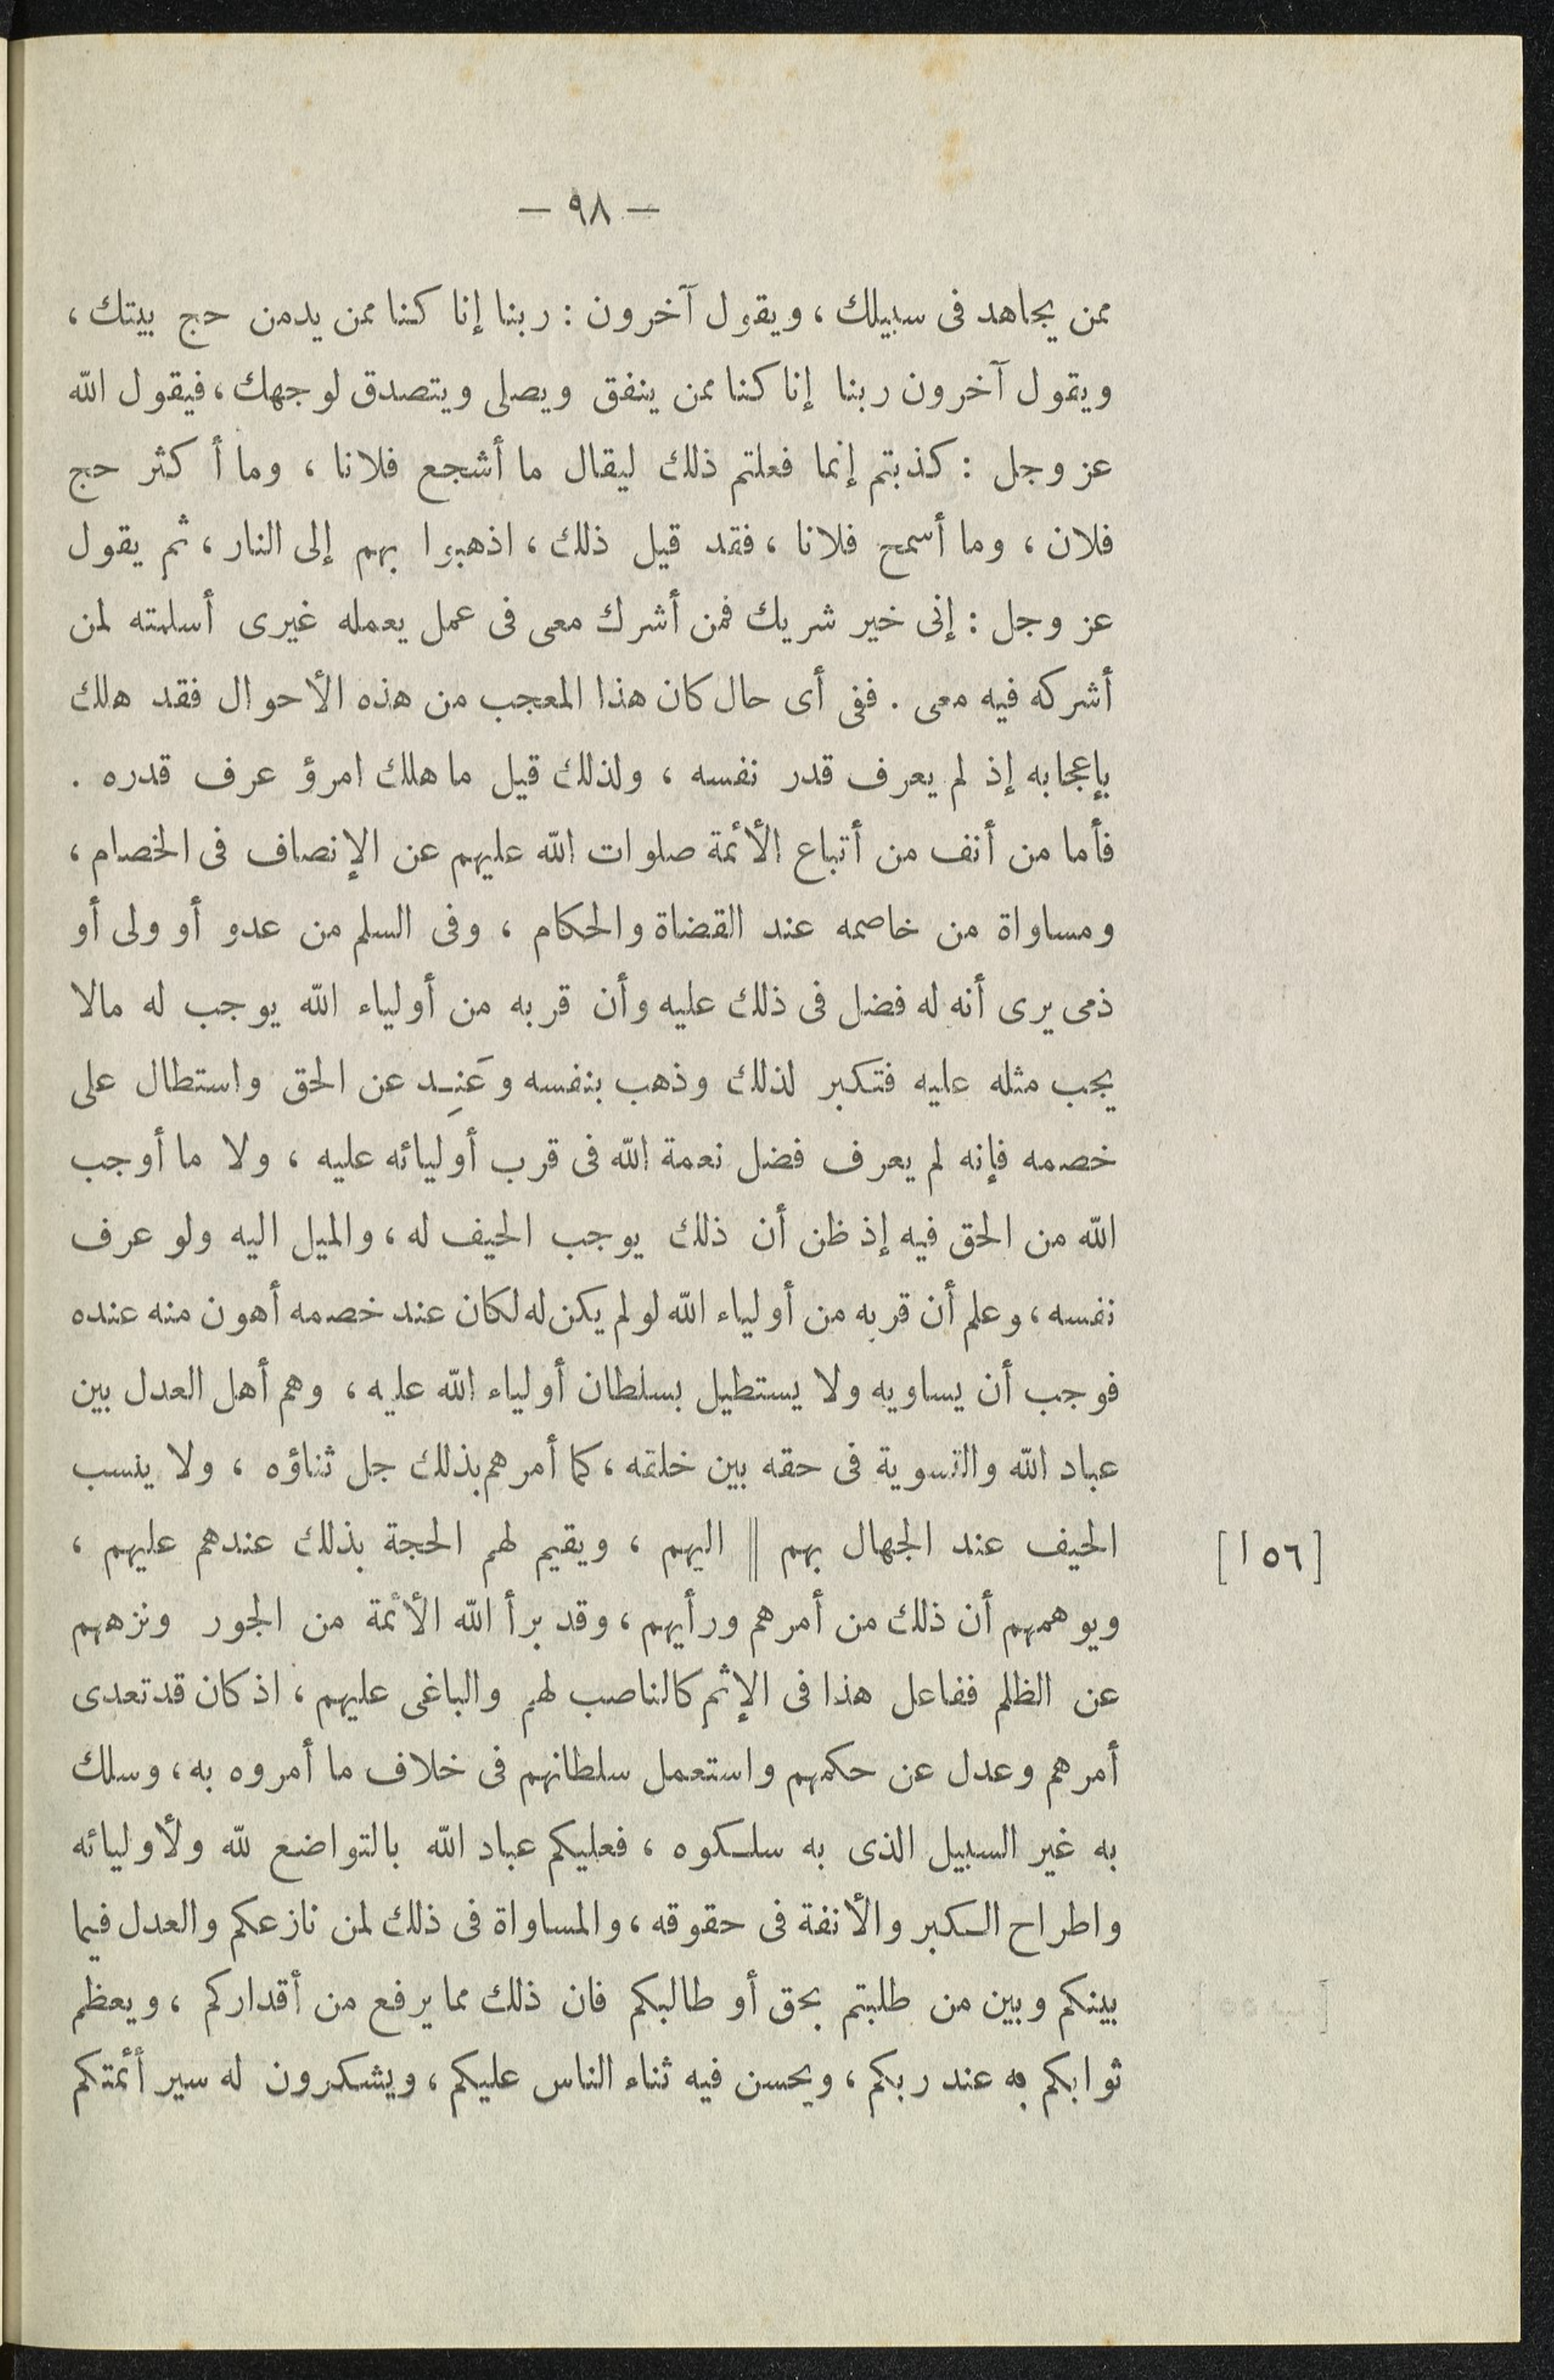 — ٩٨ —
ممن يجاهد فى سبيلك ، ويقول آخرون : ربنا إنا كنا ممن يدمن حج بيتك ،
ويقول آخرون ربنا إنا كنا ممن ينفق ويصلى ويتصدق لوجهك ، فيقول الله
عز وجل : كذبتم إنما فعلتم ذلك ليقال ما أشجع فلانا ، وما أكثر حج
فلان ، وما أسمح فلانا ، فقد قيل ذلك ، اذهبوا بهم إلى النار ، ثم يقول
عز وجل : إنى خير شريك فمن أشرك معى فى عمل يعمله غيرى أسلمته لمن
أشركه فيه معى . ففى أى حال كان هذا المعجب من هذه الأحوال فقد هلك
بإعجابه إذ لم يعرف قدر نفسه ، ولذلك قيل ما هلك امرؤ عرف قدره .
فأما من أنف من أتباع الأئمة صلوات الله عليهم عن الإنصاف فى الخصام ،
ومساواة من خاصمه عند القضاة والحكام ، وفى السلم من عدو أو ولى أو
ذمى يرى أنه له فضل فى ذلك عليه وأن قربه من أولياء الله يوجب له مالا
يجب مثله عليه فتكبر لذلك وذهب بنفسه وعَنِد عن الحق واستطال على
خصمه فإنه لم يعرف فضل نعمة الله فى قرب أوليائه عليه ، ولا ما أوجب
الله من الحق فيه إذ ظن أن ذلك يوجب الحيف له ، والميل اليه ولو عرف
نفسه ، وعلم أن قربه من أولياء الله لو لم يكن له لكان عند خصمه أهون منه عنده
فوجب أن يساويه ولا يستطيل بسلطان أولياء الله عليه ، وهم أهل العدل بين
عباد الله والتسوية فى حقه بين خلقه ، كما أمرهم بذلك جل ثناؤه ، ولا ينسب
الحيف عند الجهال بهم || اليهم ، ويقيم لهم الحجة بذلك عندهم عليهم ،
[٥٦ ا]
ويوهمهم أن ذلك من أمرهم ورأيهم ، وقد برأ الله الأئمة من الجور ونزههم
عن الظلم ففاعل هذا فى الإثم كالناصب لهم والباغى عليهم ، اذ كان قد تعدى
أمرهم وعدل عن حكمهم واستعمل سلطانهم فى خلاف ما أمروه به ، وسلك
به غير السبيل الذى به سلكوه ، فعليكم عباد الله بالتواضع لله ولأوليائه
واطراح الكبر والأنفة فى حقوقه ، والمساواة فى ذلك لمن نازعكم والعدل فيما
بينكم وبين من طلبتم بحق أو طالبكم فان ذلك مما يرفع من أقداركم ، ويعظم
ثوابكم به عند ربكم ، ويحسن فيه ثناء الناس عليكم ، ويشكرون له سير أئمتكم